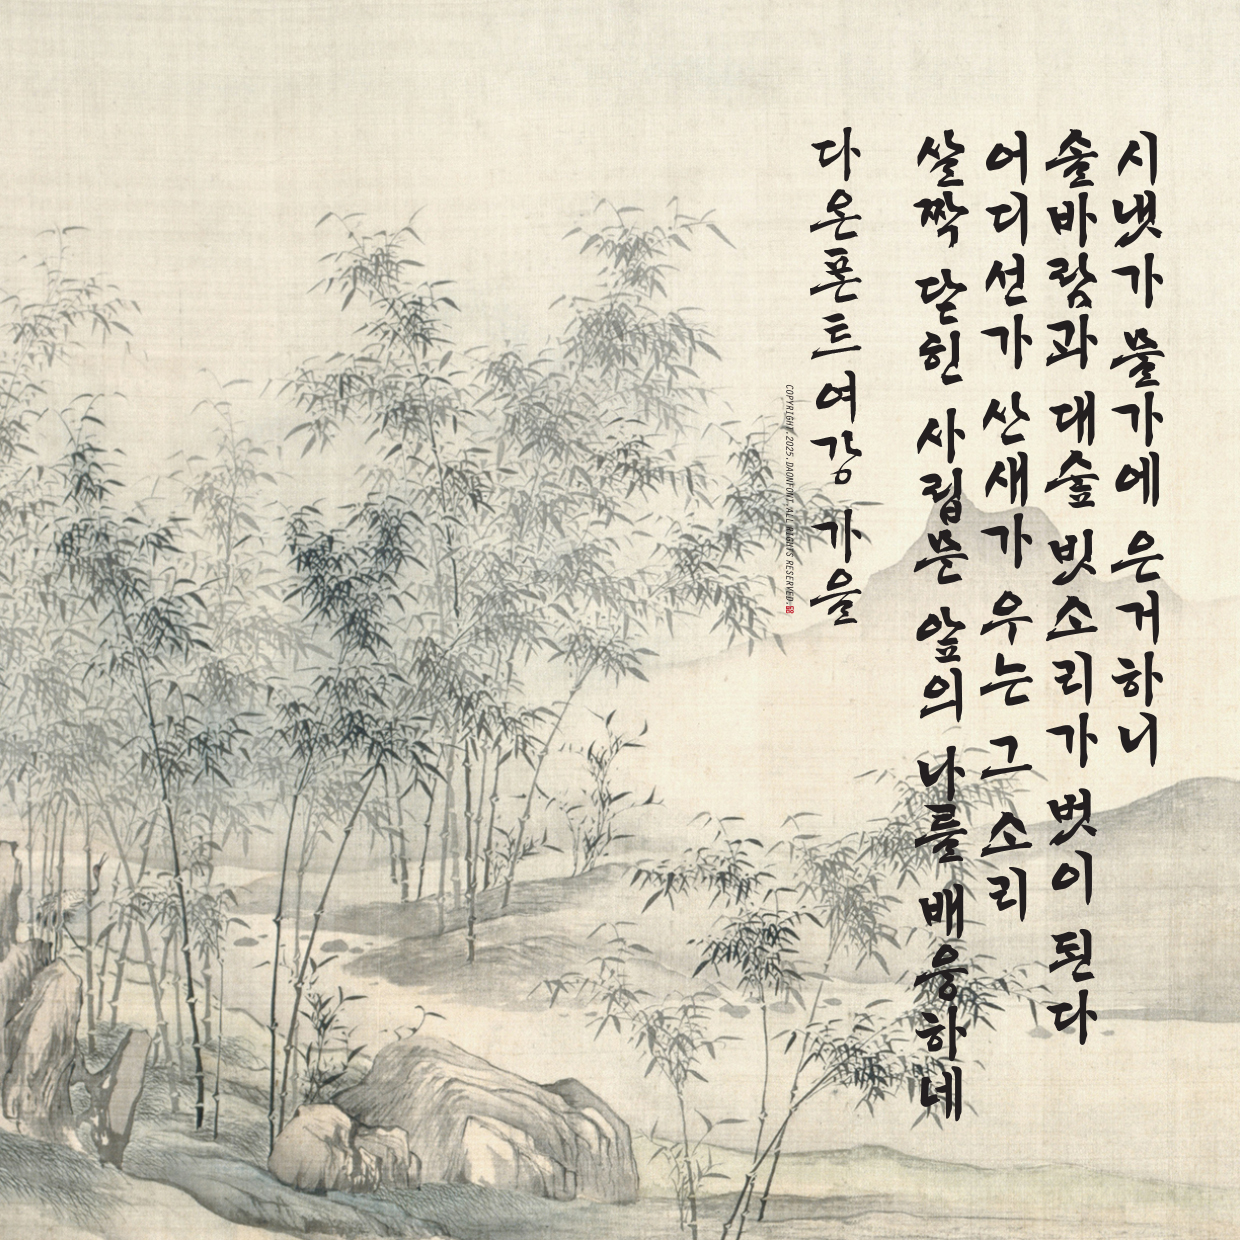 시냇가 물가에 은거하니
솔바람과 대숲 빗소리가 벗이 된다
어디선가 산새가 우는 그 소리
살짝 닫힌 사립문 앞의 나를 배웅하네
다온폰트 여강 가을
COPYRIGHT.2025. DAONFONT. ALL RIGHTS RESERVED.